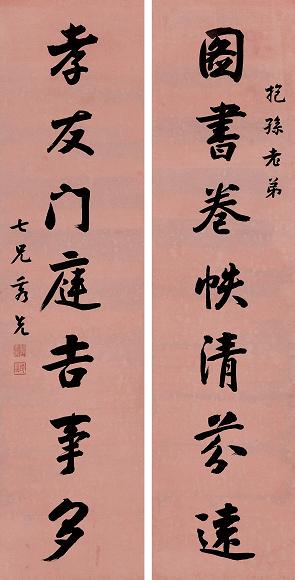 抱孫老弟
圖書卷帙清芬遠
孝友门庭吉事多
七兄秀先